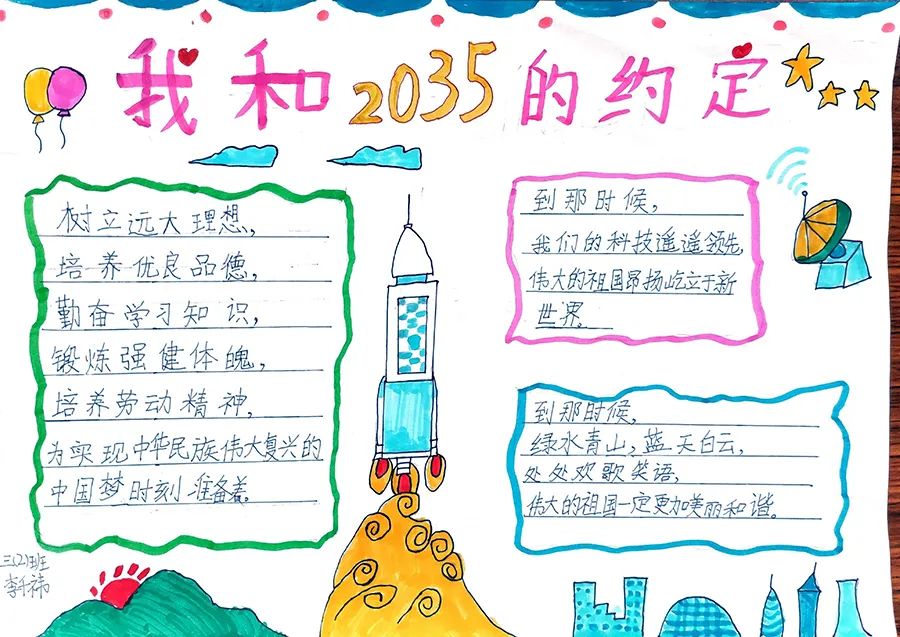 我和2035的约定
树立远大理想,
培养优良品德,
勤奋学习知识,
锻炼强健体魄,
培养劳动精神,
为实现中华民族伟大复兴的
中国梦时刻准备着。
到那时候,
我们的科技遥遥领先,
伟大的祖国昂扬屹立于新
世界。
到那时候,
绿水青山,蓝天白云,
处处欢歌笑语,
伟大的祖国一定更加美丽和谐。
三(2)班
李千祎